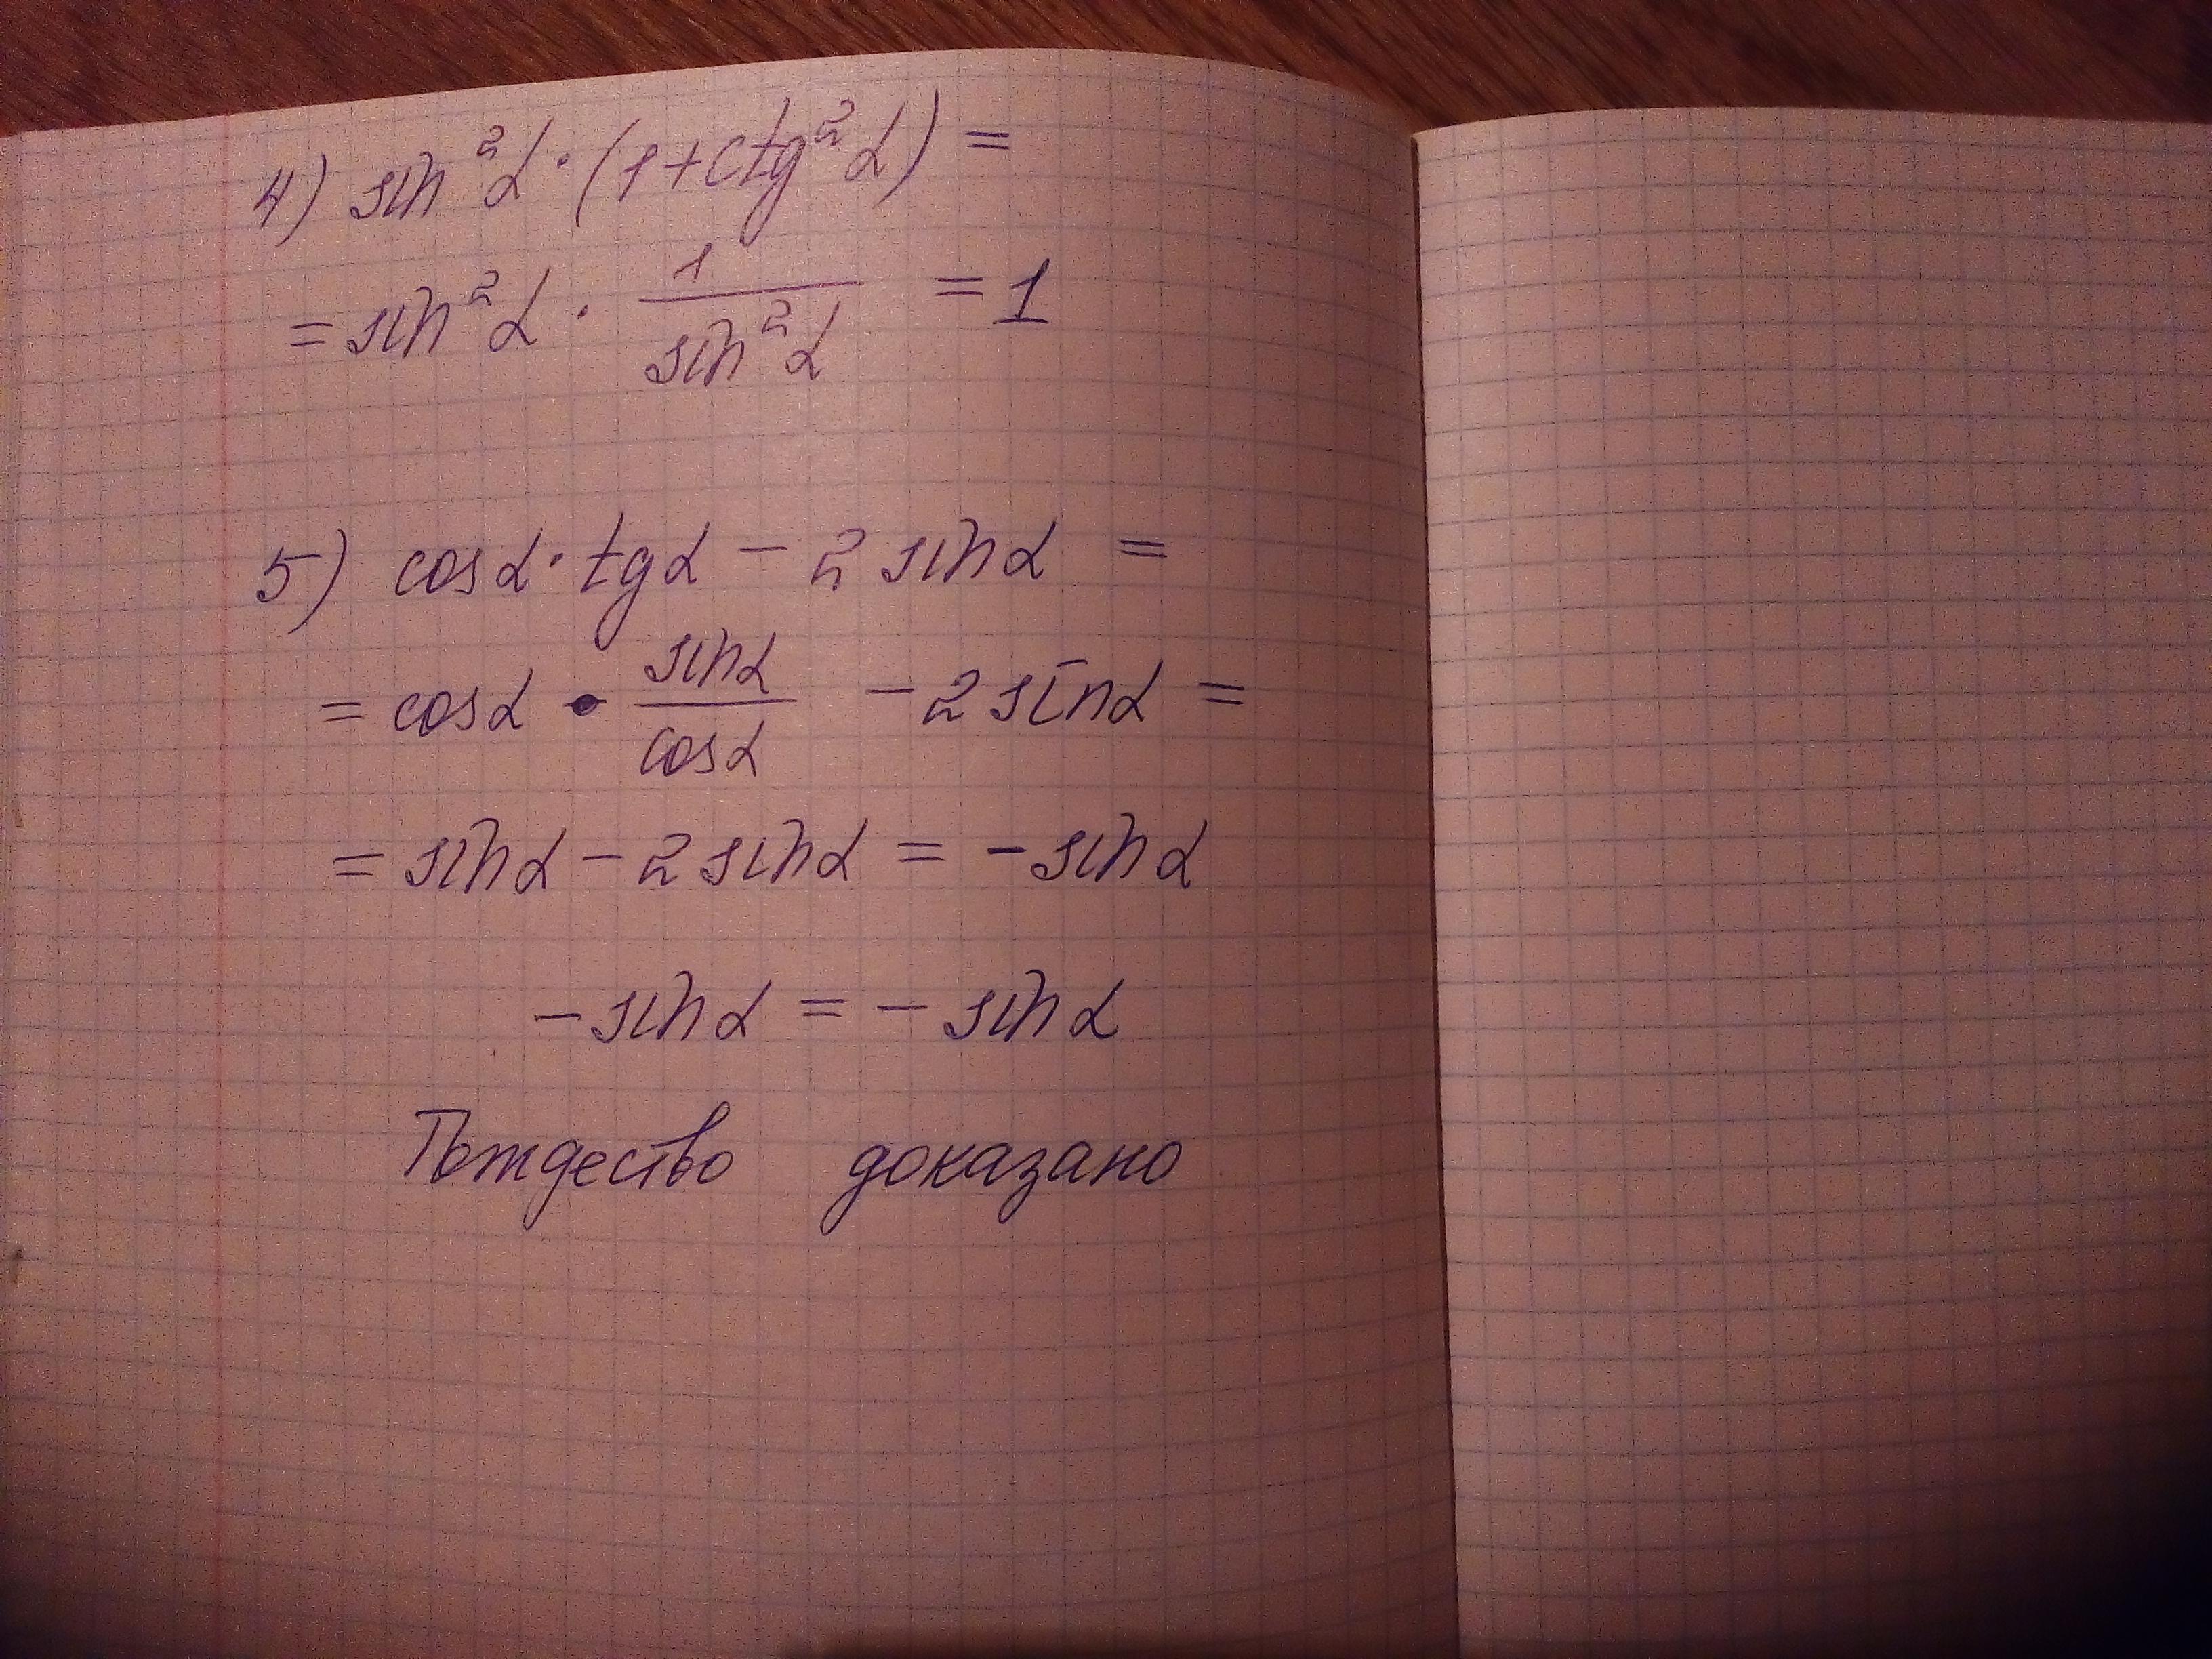 4) sin²α · (1 + ctg²α) =
= sin²α · 1/sin²α = 1
5) cosα · tgα − 2 sinα =
= cosα · sinα/cosα − 2 sinα =
= sinα − 2 sinα = − sinα
− sinα = − sinα
Тождество доказано